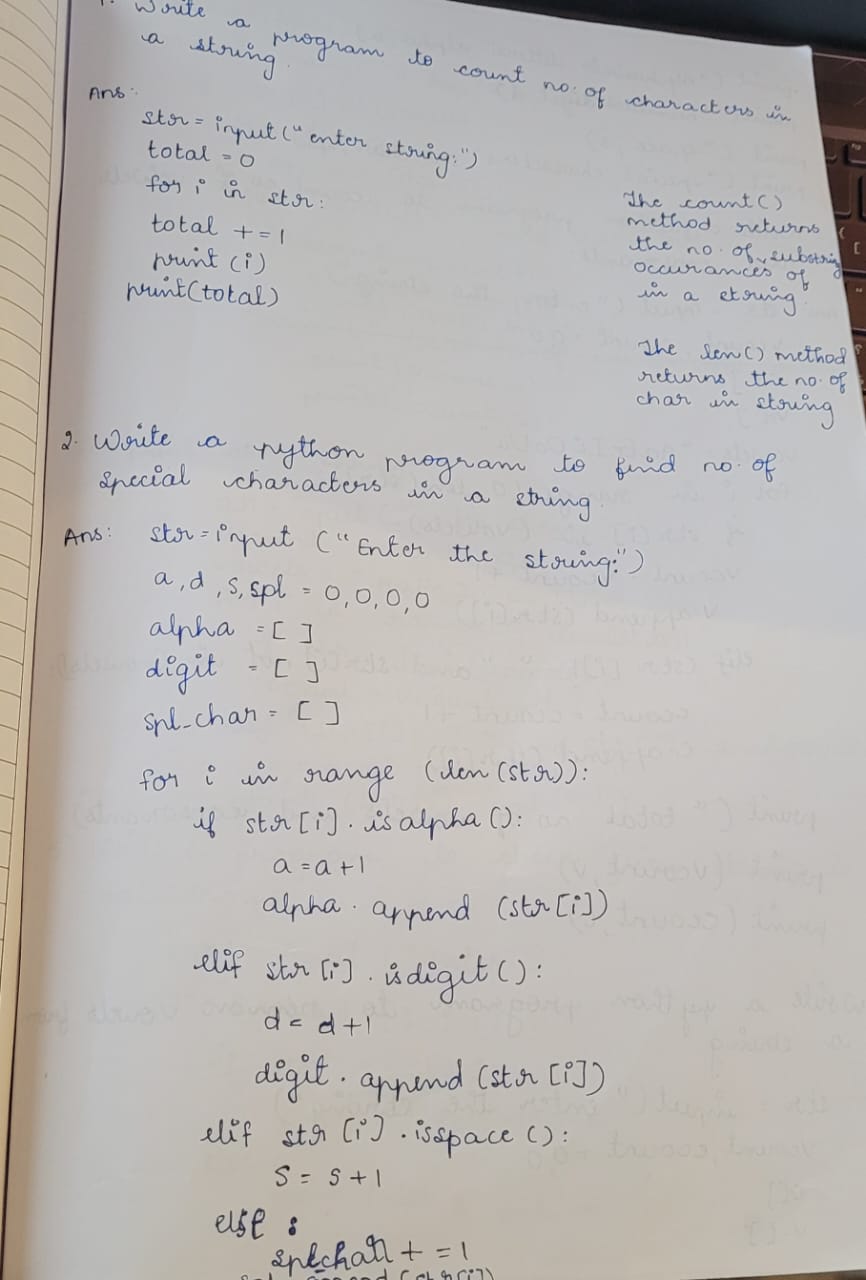 1. Write a program to count no. of characters in
a string.
Ans:
str = input("enter string:")
total = 0
for i in str:
total += 1
print (i)
print(total)
The count()
method returns
the no. of substring
occurances of
in a string.
The len() method
returns the no. of
char in string
2. Write a python program to find no. of
special characters in a string.
Ans: str = input ("Enter the string:")
a, d, s, spl = 0, 0, 0, 0
alpha = [ ]
digit = [ ]
spl_char = [ ]
for i in range (len (str)):
if str [i]. isalpha ():
a = a + 1
alpha. append (str [i])
elif str [i]. isdigit ():
d = d + 1
digit. append (str [i])
elif str [i]. isspace ():
s = s + 1
else :
+ = 1
append (str[i])